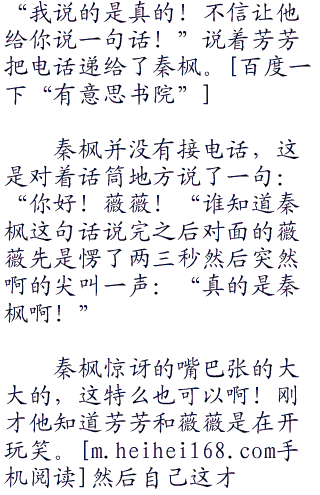 “我说的是真的！不信让他
给你说一句话！”说着芳芳
把电话递给了秦枫。[百度一
下“有意思书院”]
秦枫并没有接电话，这
是对着话筒地方说了一句：
“你好！薇薇！“谁知道秦
枫这句话说完之后对面的薇
薇先是愣了两三秒然后突然
啊的尖叫一声：“真的是秦
枫啊！”
秦枫惊讶的嘴巴张的大
大的，这特么也可以啊！刚
才他知道芳芳和薇薇是在开
玩笑。[m.heihei168.com手
机阅读]然后自己这才